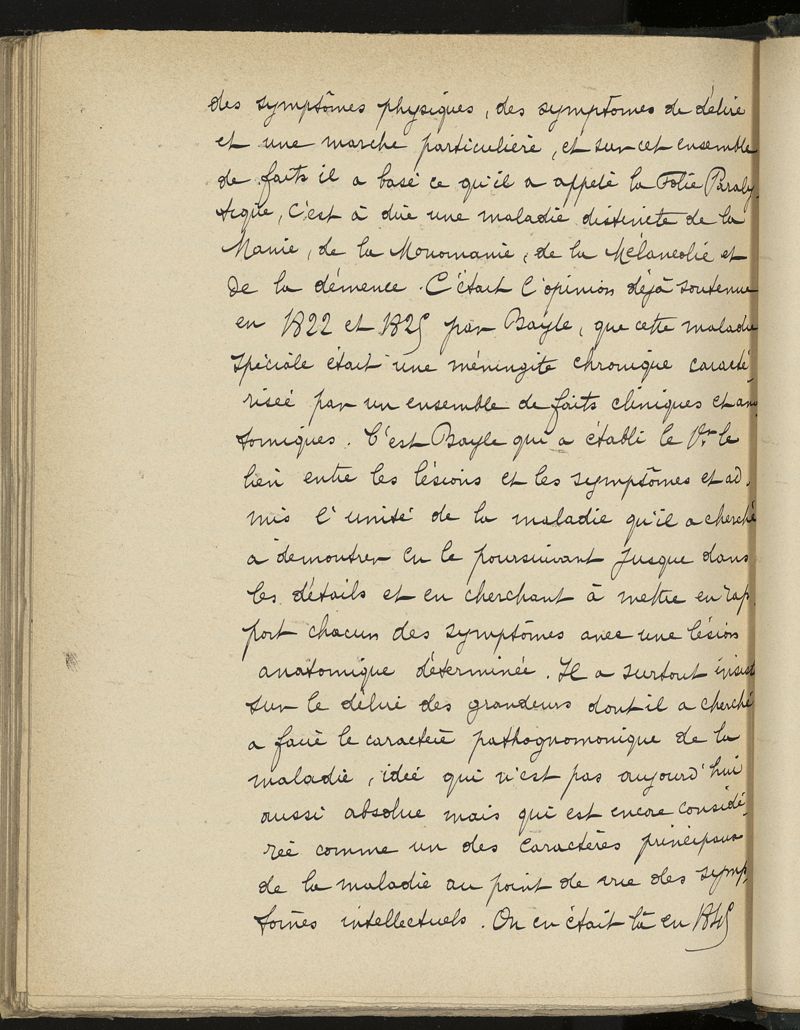 des symptômes physiques, des symptômes de délire
et une marche particulière, et sur cet ensemble
de faits il a basé ce qu'il a appelé la Folie Paraly
tique, c'est à dire une maladie distincte de la
Manie, de la Monomanie, de la Mélancolie et
de la démence. C'était l'opinion déjà soutenue
en 1822 et 1825 par Bayle, que cette maladie
spéciale était une méningite chronique caracté
risée par un ensemble de faits cliniques et ana
tomiques. C'est Bayle qui a établi le 1er le
lien entre les lésions et les symptômes et ad
mis l'unité de la maladie qu'il a cherché
à démontrer en le poursuivant jusque dans
les détails et en cherchant à mettre en rap
port chacun des symptômes avec une lésion
anatomique déterminée. Il a surtout insisté
sur le délire des grandeurs dont il a cherché
a faire le caractère pathognomonique de la
maladie, idée qui n'est pas aujourd'hui
aussi absolue mais qui est encore considé
rée comme un des caractères principaux
de la maladie au point de vue des symp
tômes intellectuels. On en était là en 1845